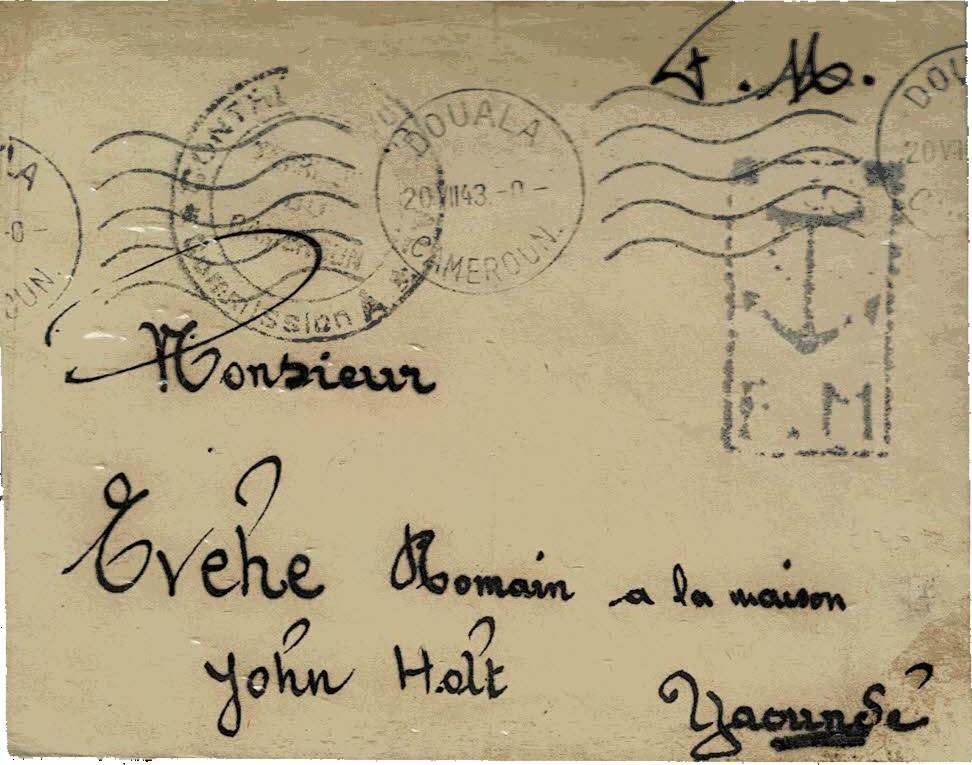 F.M.
DOUALA
20 VII 43 -0-
CAMEROUN.
DOU
20 VII
LA
-0-
OUN
CONTR
CAMEROUN
Commission A
F.M
Monsieur
Evehe Romain a la maison
John Holt
Yaoundé